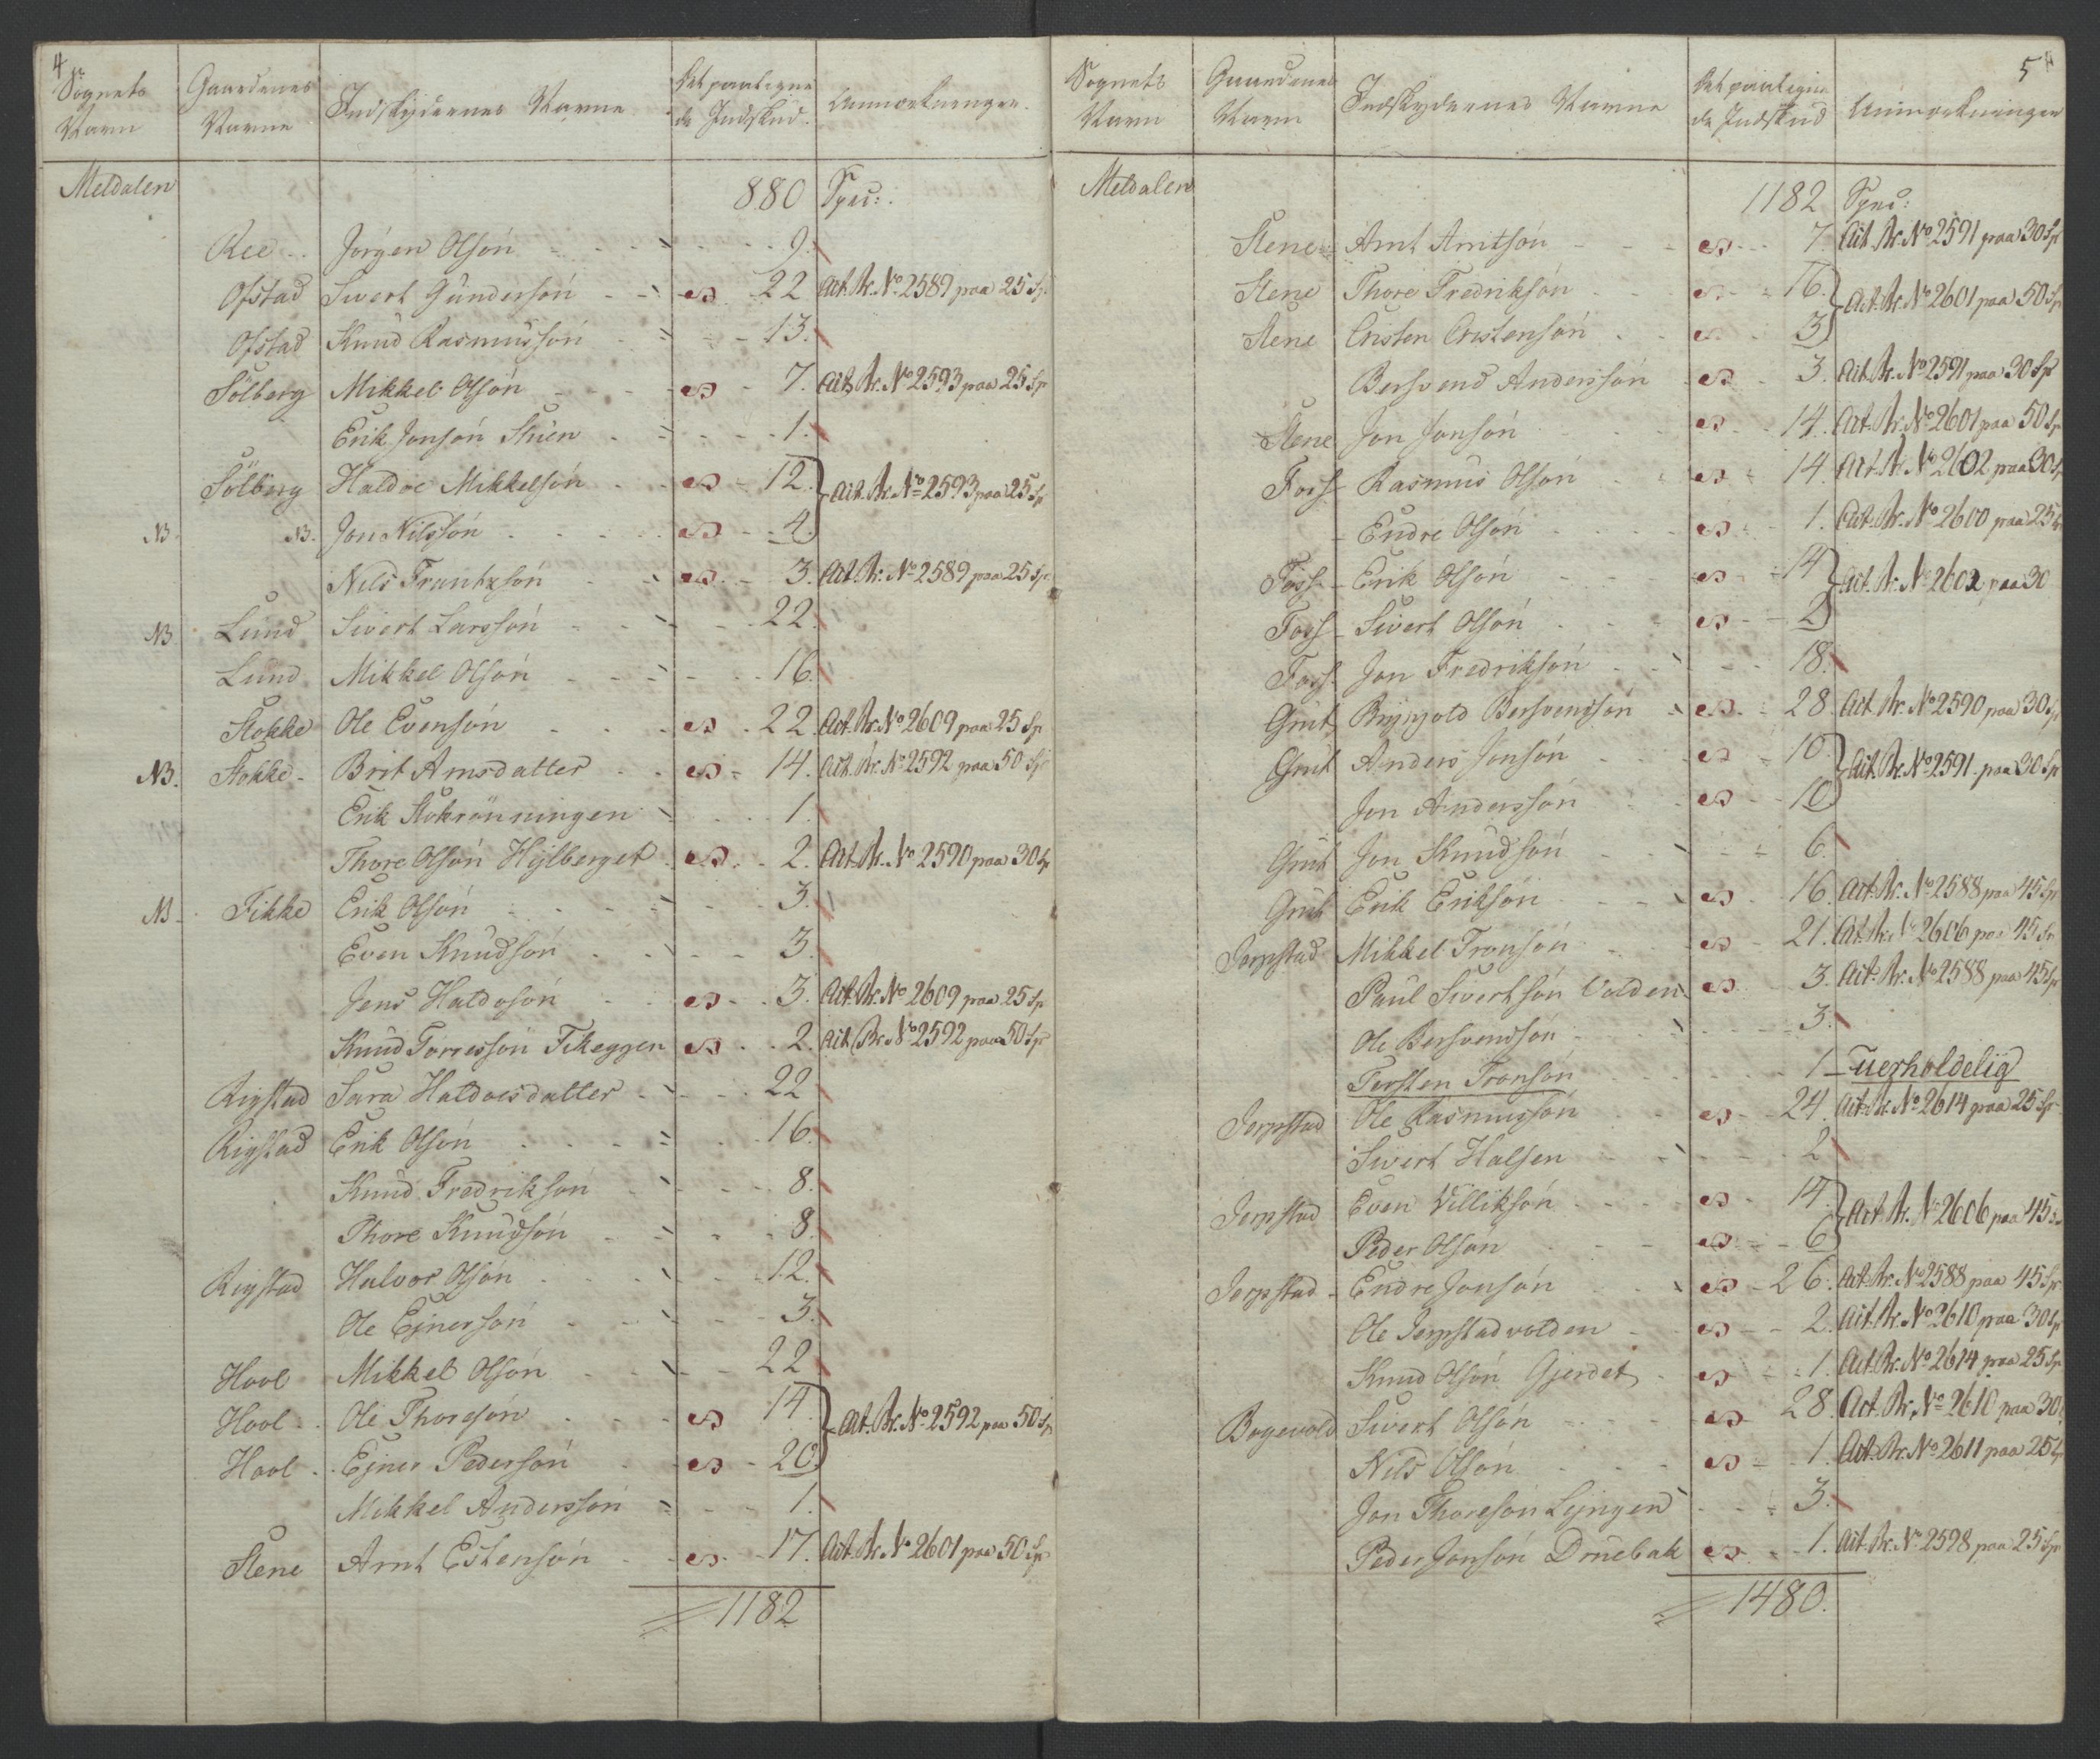 4
Sognets Navn | Gaardenes Navne | Indskydernes Navne | Det paaligne de Indskud | Anmærkninger
Meldalen 880 Spec:
Ree Jörgen Olsön 9.
Ofstad Sivert Gundersön 22 Act. Br. No 2589 paa 25 Sp
Ofstad Knud Rasmussön 13.
Sölberg Mikkel Olsön 7. Act. Br. No 2593 paa 25 Sp
Erik Jonsön Stuen 1.
Sölberg Haldoe Mikkelsön 12. Act. Br. No 2593 paa 25 Sp
NB NB. Jon Nilssön 4.
Nils Frantzsön 3. Act. Br. No 2589 paa 25 Sp.
NB Lund Sivert Larssön 22.
Lund Mikkel Olsön 16.
Stokke Ole Evensön 22. Act. Br. No 2609 paa 25 Sp
NB. Stokke Brit Arnsdatter 14. Act. Br. No 2592 paa 50 Sp
Erik Stokrönningen 1.
Thore Olsön Hylberget 2. Act. Br. No 2590 paa 30 Sp
NB Fikke Erik Olsön 3.
Even Knudsön 3.
Jens Haldosön 3. Act. Br. No 2609 paa 25 Sp
Knud Torressön Fikeggen 2. Act. Br. No 2592 paa 50 Sp
Rigstad Sara Haldoesdatter 22
Rigstad Erik Olsön 16.
Knud Fredriksön 8.
Thore Knudsön 8.
Rigstad Halvor Olsön 12.
Ole Ejnersön 3.
Hool Mikkel Olsön 22
Hool Ole Thoresön 14. Act. Br. No 2592 paa 50 Sp
Hool Ejner Pedersön 20.
Mikkel Anderssön 1.
Stene Arnt Estensön 17. Act. Br. No 2601 paa 50 Sp
1182
5
Sognets Navn | Gaardenes Navn | Indskydernes Navne | Det paaligne de Indskud | Anmærkninger
Meldalen 1182 Spec:
Stene Arnt Arntsön 7. Act. Br. No 2591 paa 30 Sp
Stene Thore Fredriksön 16. Act. Br. No 2601 paa 50 Sp
Stene Cristen Cristensön 3
Bersvend Anderssön 3. Act. Br. No 2591 paa 30 Sp
Stene Jon Jonsön 14. Act. Br. No 2601 paa 50 Sp
Foss Rasmus Olsön 14. Act. Br. No 2602 paa 30 Sp
Endre Olsön 1. Act. Br. No 2600 paa 25 Sp
Foss Erik Olsön 14 Act. Br. No 2602 paa 30
Foss Sivert Olsön 2
Foss Jon Fredriksön 18.
Grut Brynjold Bersvendsön 28. Act. Br. No 2590 paa 30 Sp
Grut Anders Jonsön 10. Act. Br. No 2591 paa 30 Sp
Jon Anderssön 10
Grut Jon Knudsön 6.
Grut Erik Eriksön 16. Act. Br. No 2588 paa 45 Sp
Jerpstad Mikkel Tronsön 21. Act. Br. No 2606 paa 45 Sp
Paul Sivertsön Volden 3. Act. Br. No 2588 paa 45 Sp
Ole Bersvendsön 3.
Torsten Tronsön 1 - uerholdelig
Jerpstad Ole Rasmussön 24. Act. Br. No 2614 paa 25 Sp
Sivert Halsen 2
Jerpstad Even Villiksön 14. Act. Br. No 2606 paa 45 Sp
Peder Olsön 6
Jerpstad Endre Jonsön 26. Act. Br. No 2588 paa 45 Sp
Ole Jerpstadvolden 2. Act. Br. No 2610 paa 30 Sp
Knud Olsön Gjerdet 1. Act. Br. No 2614 paa 25 Sp
Bogevold Sivert Olsön 28. Act. Br. No 2610 paa 30
Nils Olsön 1. Act. Br. No 2611 paa 25 Sp
Jon Thoresön Lyngen 3.
Peder Jonsön Druebak 1. Act. Br. No 2598 paa 25 Sp
1480.